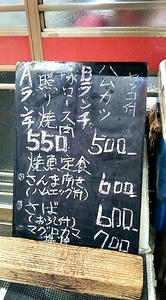 ハムカツ
Bランチ
500-
豚ロース肉
照り焼
Aランチ
550
焼魚定食
さんま開き
(ハムエッグ付)
600-
さば
(おろし付)
600-
マグロカマ
700